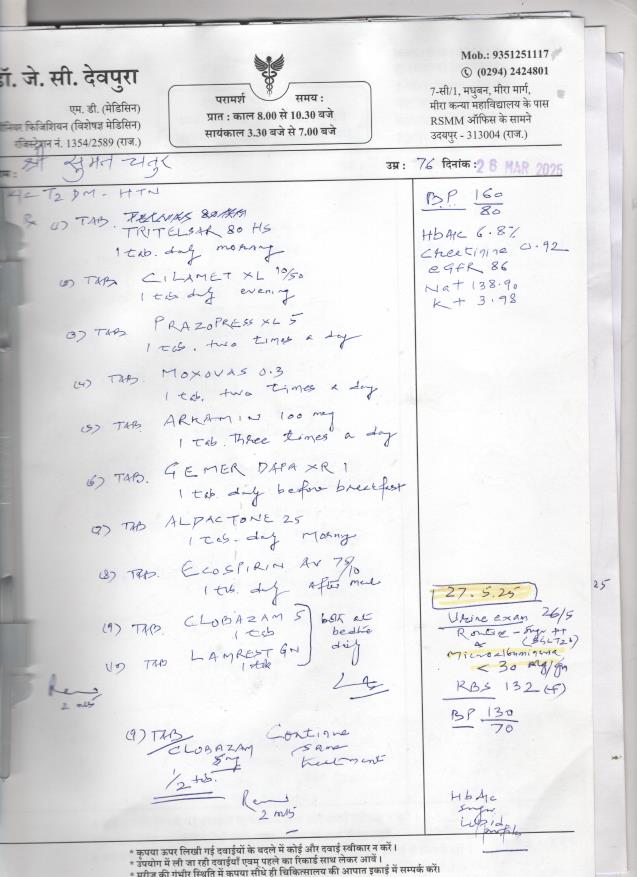 डॉ. जे. सी. देवपुरा
एम. डी. (मेडिसिन)
सीनियर फिजिशियन (विशेषज्ञ मेडिसिन)
रजिस्ट्रेशन नं. 1354/2589 (राज.)
परामर्श समय :
प्रात : काल 8.00 से 10.30 बजे
सायंकाल 3.30 बजे से 7.00 बजे
Mob.: 9351251117
(0294) 2424801
7-सी/1, मधुबन, मीरा मार्ग,
मीरा कन्या महाविद्यालय के पास
RSMM ऑफिस के सामने
उदयपुर - 313004 (राज.)
श्री सुमत चतुर
उम्र : 76 दिनांक: 26 MAR 2025
T2 DM - HTN
(1) TAB.
TRITELSAR 80 HS
1 tab. daily morning
(2) TAB. CILAMET XL 10/50
1 tab daily evening
(3) TAB. PRAZOPRESS XL 5
1 tab. two times a day
(4) TAB. MOXOVAS 0.3
1 tab. two times a day
(5) TAB. ARKAMIN 100 mcg
1 tab. three times a day
(6) TAB. GEMER DAPA XR 1
1 tab. daily before breakfast
(7) TAB ALDACTONE 25
1 tab. daily Morng
(8) TAB. ECOSPIRIN AV 75/10
1 tab. daily after meal
(9) TAB. CLOBAZAM 5
1 tab
(10) TAB LAMREST GN
1 tab
both at
bedtime
daily
2 mths
BP 160/80
HbA1c 6.8%
Creatinine 0.92
eGFR 86
Na+ 138.90
K+ 3.98
27.5.25
25
Urine exam 26/5
Routine - Sugar ++
(SGLT2i)
Microalbuminuria
< 30 mg/gm
RBS 132 (F)
BP 130/70
(9) TAB
CLOBAZAM
5mg
1/2 tab.
Continue
same
treatment
2 mths
HbA1c
Sugar
Lipid
profile
* कृपया ऊपर लिखी गई दवाईयों के बदले में कोई और दवाई स्वीकार न करें।
* उपयोग में ली जा रही दवाईयाँ एवम् पहले का रिकार्ड साथ लेकर आवें।
* मरीज की गंभीर स्थिति में कृपया सीधे ही चिकित्सालय की आपात इकाई में सम्पर्क करें।